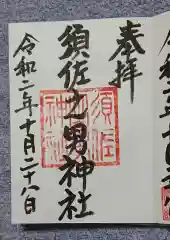 奉拝
須佐之男神社
令和二年十月二十八日